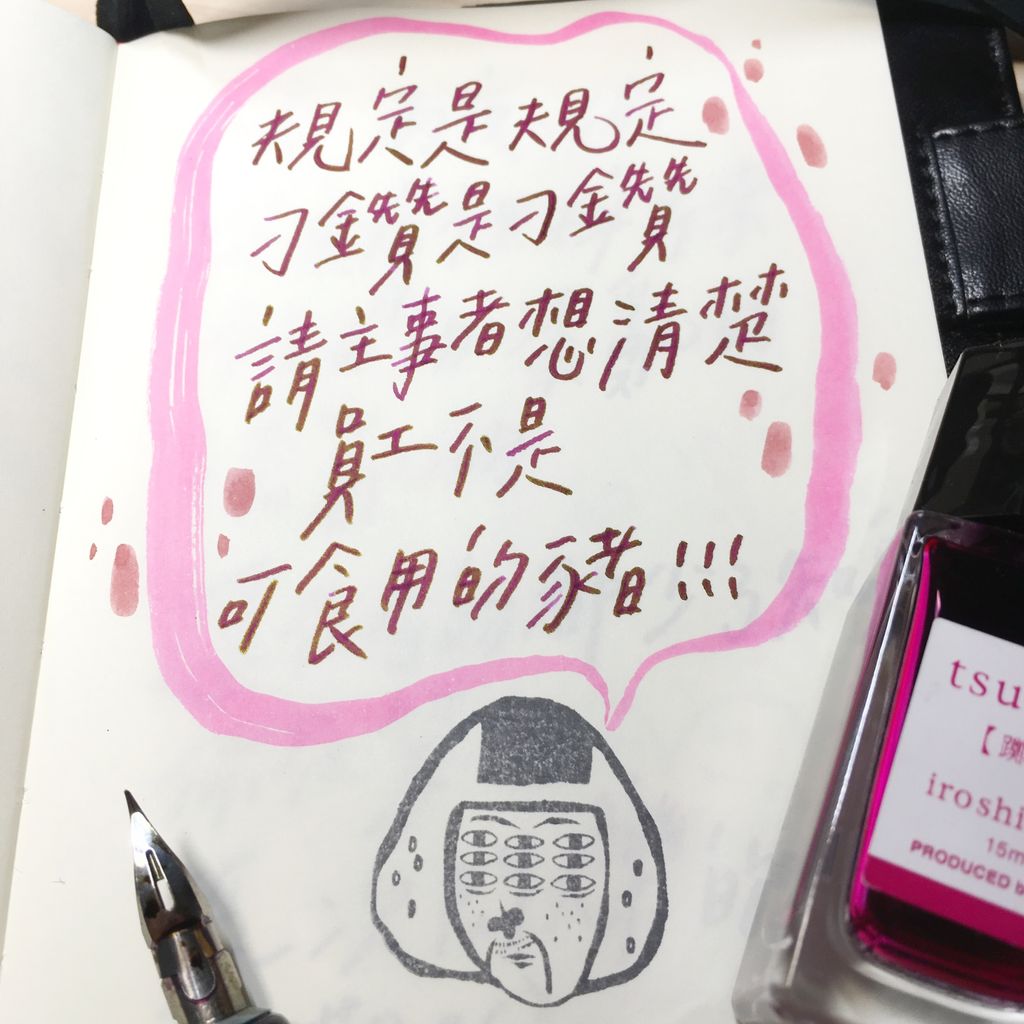 規定是規定
刁鑽是刁鑽
請主事者想清楚
員工不是
可食用的豬!!!
tsu
【躑
iroshi
15m
PRODUCED b